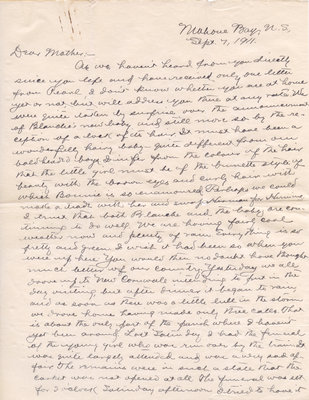 Mahone Bay, N.S.
Sept. 7, 1911.
Dear Mother:-
As we haven't heard from you directly
since you left and have received only one letter
from Pearl I don't know whether you are at home
yet or not, but will address you there at any rate. We
were quite taken by surprise over the announcement
of Blanche's new baby and still more so by the re-
ception of a lock of its hair. It must have been a
wonderfully hairy baby - quite different from our
bald headed boys. I infer from the colour of the hair
that the little girl must be of the brunette style of
beauty with the brown eyes and curly hair with
which Bonnie is so enamoured. Perhaps we could
make a trade with her and swap Norman for
I trust that both Blanche and the baby are con-
tinuing to do well. We are having fair cool
weather now and plenty of rain. Everything is so
pretty and green. I wish it had been so when you
were up here. You would then no doubt have thought
much better of our country. Yesterday we all
drove up to New Cornwall intending to put in the
day visiting but after dinner it began to rain
and as soon as there was a little lull in the storm
we drove home having made only three calls. That
is about the only part of the parish where I haven't
yet been around. Last Sunday I had the funeral
of the young girl who was run over by the train. It
was quite largely attended and was a very sad af-
fair. The remains were in such a state that the
casket was not opened at all. The funeral was set
for 2 o'clock Sunday afternoon. I tried to have it